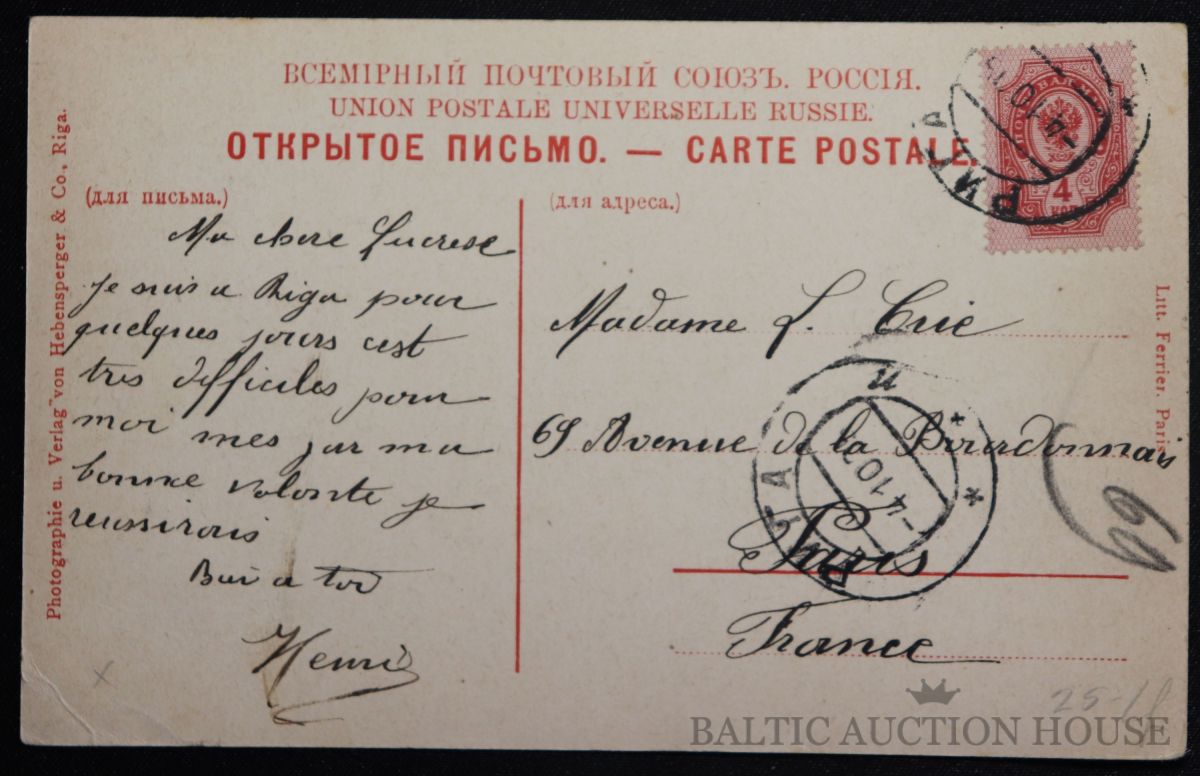 ВСЕМІРНЫЙ ПОЧТОВЫЙ СОЮЗЪ. РОССІЯ.
UNION POSTALE UNIVERSELLE RUSSIE.
ОТКРЫТОЕ ПИСЬМО. — CARTE POSTALE.
(для письма.)
(для адреса.)
Photographie u. Verlag von Hebensperger & Co., Riga.
Ma chere Lucrese
je suis a Riga pour
quelques jours c'est
tres difficiles pour
moi mes par ma
bonne volonte je
reussirais
a toi
Henri
4
КОП
РИГА
Madame L. Crie
69 Avenue de la Bourdonnais
Paris
France
РИГА
-4 10 07
69
Litt. Ferrier. Paris
BALTIC AUCTION HOUSE